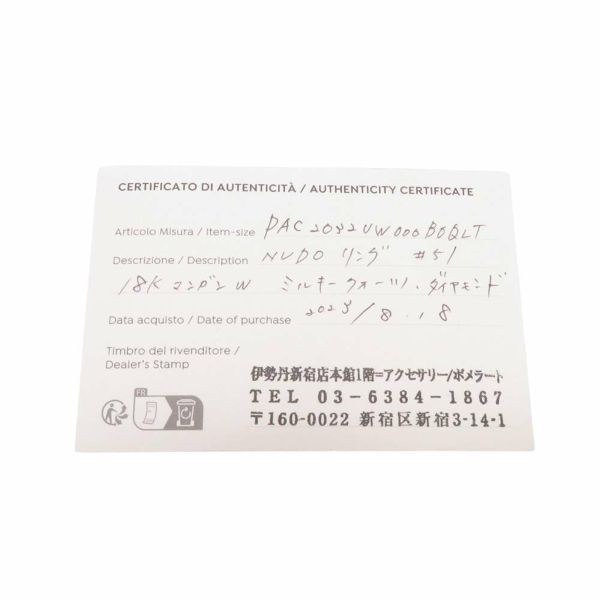 CERTIFICATO DI AUTENTICITÀ / AUTHENTICITY CERTIFICATE
Articolo Misura / Item-size PAC2032UW000B0QLT
Descrizione / Description NUDO リング #51
18K コンビ W ミルキークォーツ、ダイヤモンド
Data acquisto / Date of purchase 2023/8.18
Timbro del rivenditore /
Dealer's Stamp
伊勢丹新宿店本館1階=アクセサリー/ポメラート
TEL 03-6384-1867
〒160-0022 新宿区新宿3-14-1
FR